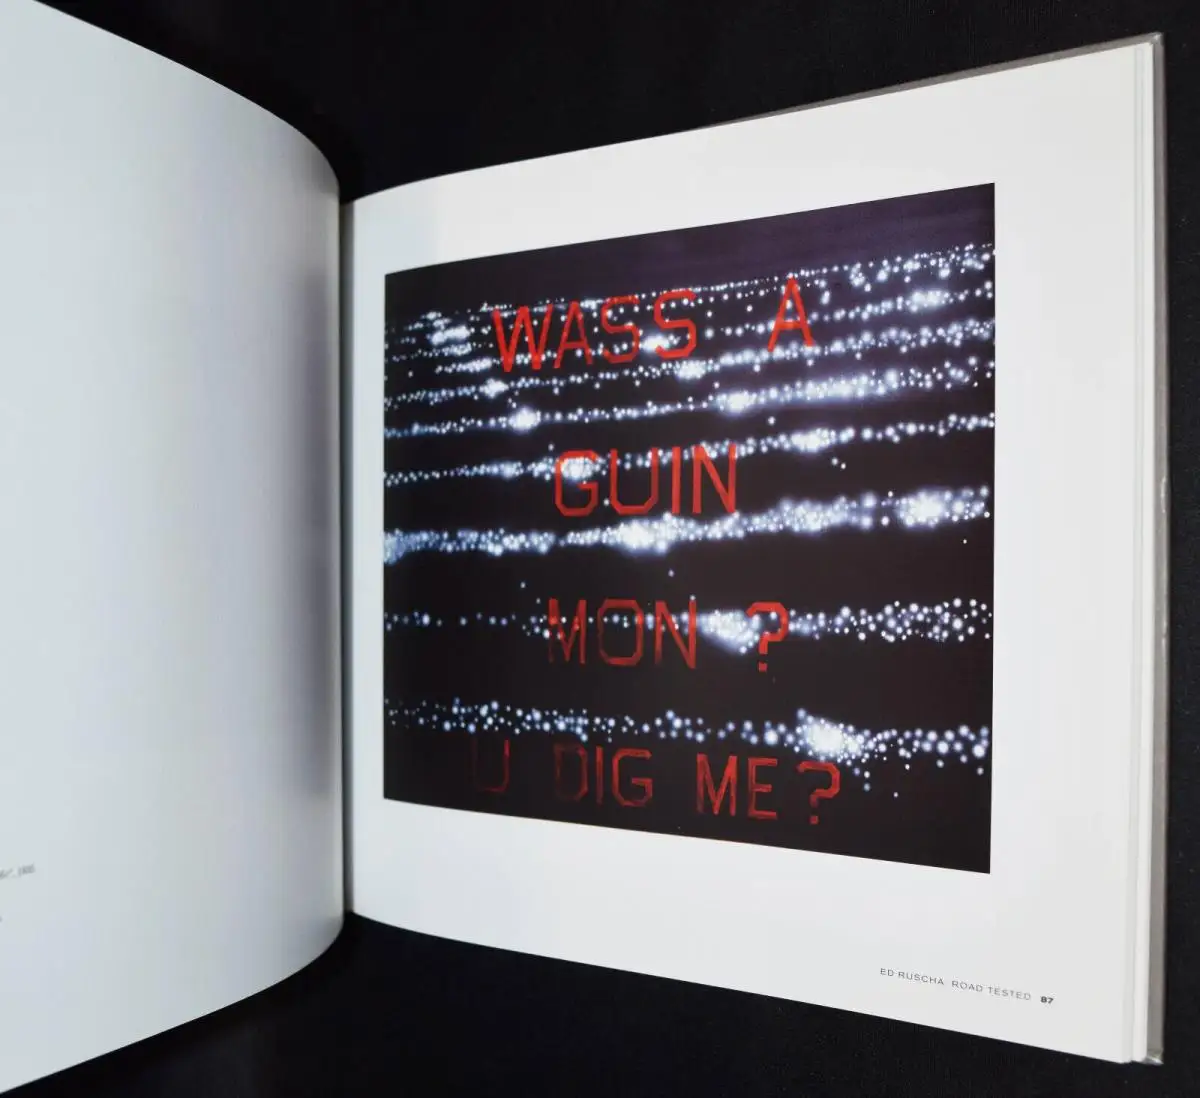 WASS A
GUIN
MON ?
U DIG ME?
ED RUSCHA ROAD TESTED 87